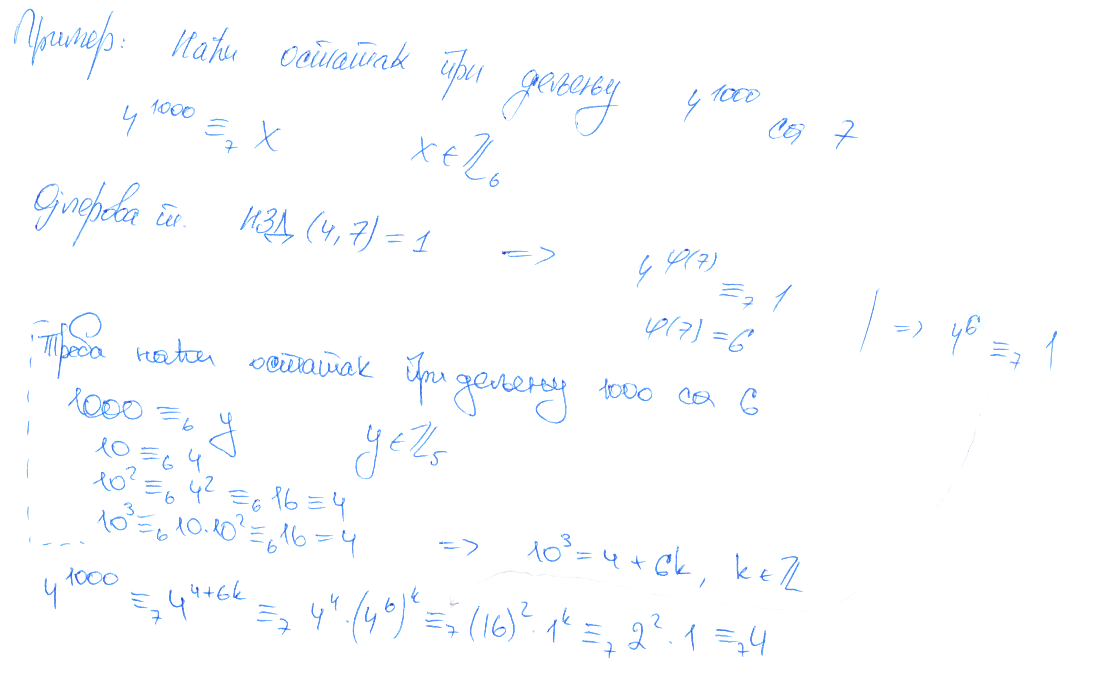 Пример: Наћи остатак при дељењу 4^1000 са 7
4^1000 ≡_7 x x ∈ ℤ_6
Ојлерова т. НЗД (4, 7) = 1 => 4^φ(7) ≡_7 1
φ(7) = 6 | => 4^6 ≡_7 1
Треба наћи остатак при дељењу 1000 са 6
1000 ≡_6 y y ∈ ℤ_5
10 ≡_6 4
10^2 ≡_6 4^2 ≡_6 16 ≡ 4
10^3 ≡_6 10·10^2 ≡_6 16 = 4 => 10^3 = 4 + 6k, k ∈ ℤ
4^1000 ≡_7 4^{4+6k} ≡_7 4^4·(4^6)^k ≡_7 (16)^2·1^k ≡_7 2^2·1 ≡_7 4